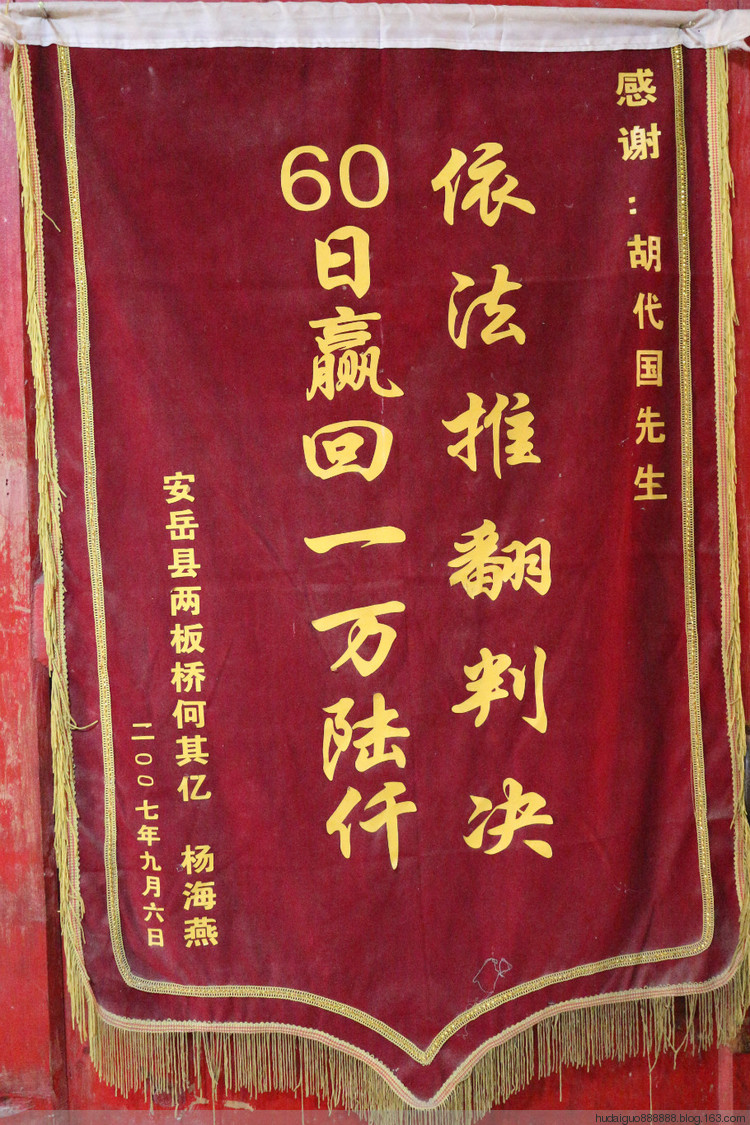 感谢：胡代国先生
依法推翻判决
60日赢回一万陆仟
安岳县两板桥何其亿 杨海燕
二〇〇七年九月六日
hudaiguo888888.blog.163.com